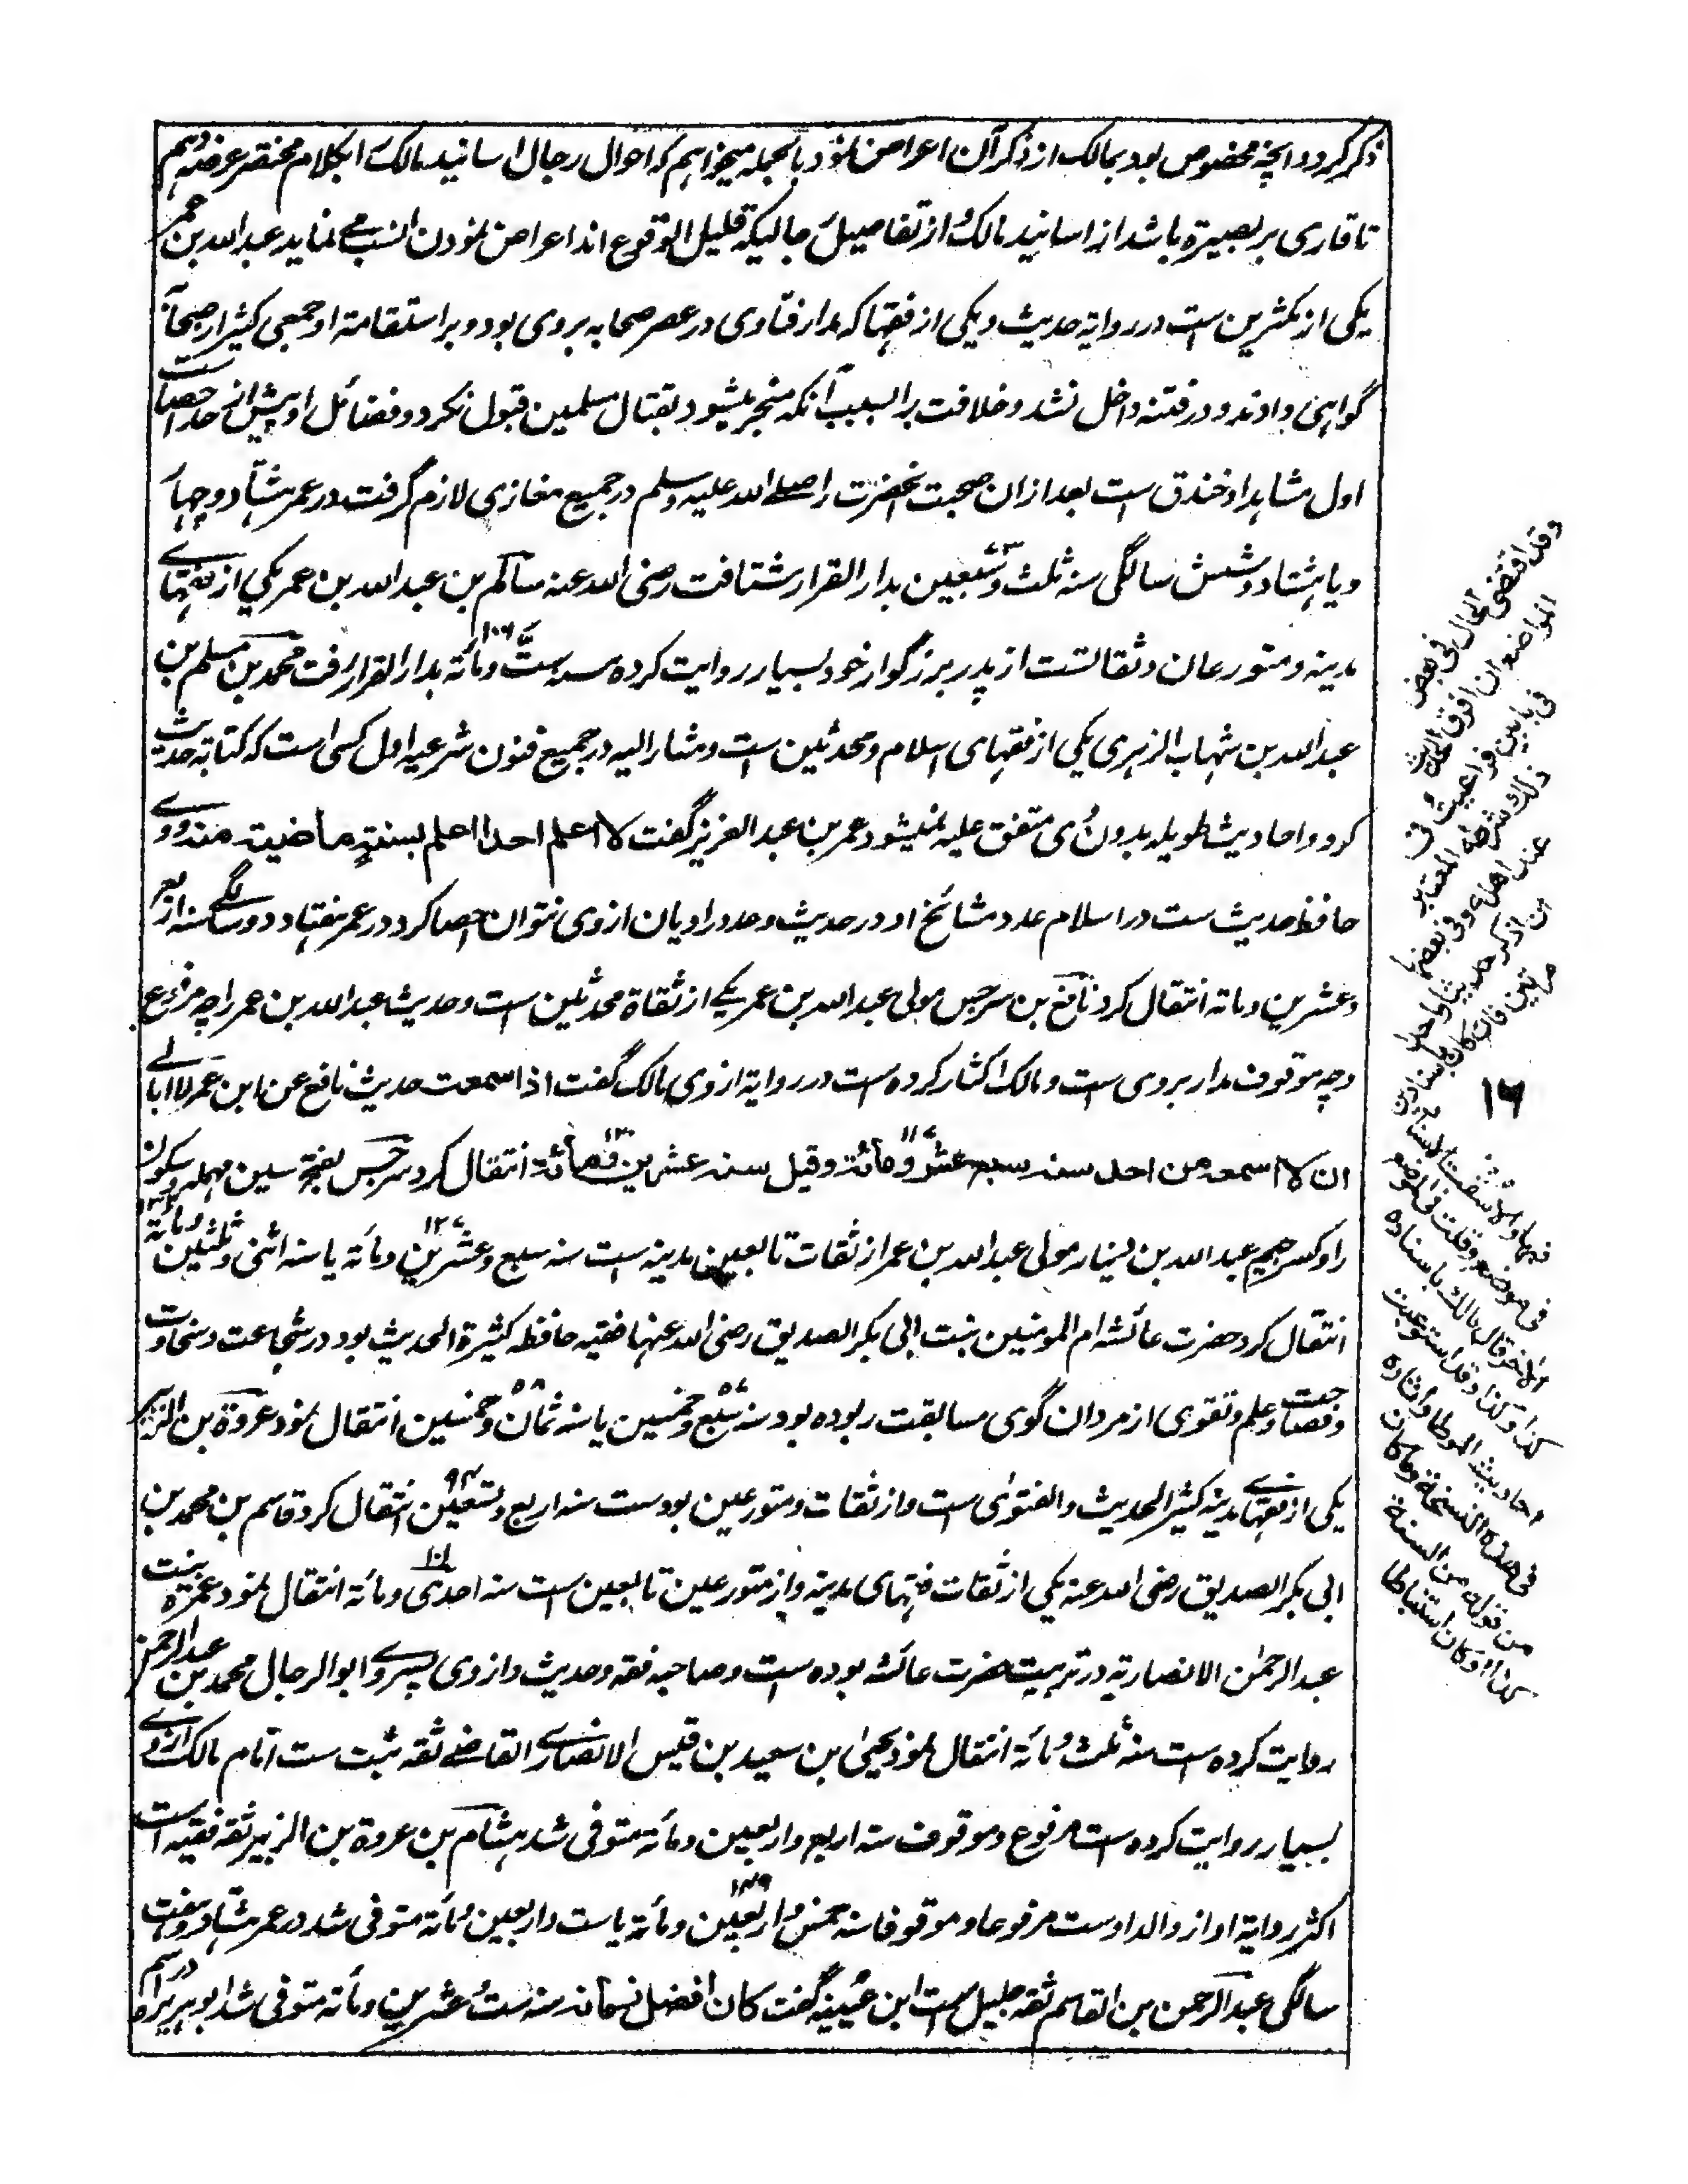 ذکر کرد و آنچه مخصوص بود بمالک از ذکر آن اعراض نمود بالجمله میخواهم که احوال رجال اسانید مالک را بکلام مختصر عرضه دهم
تا قاری بر بصیرة باشد از اسانید مالک و از تفاصیل رجالیکه قلیل الوقوع اند اعراض نمودن انسب می نماید عبد الله بن عمر
یکی از مکثرین است در روایة حدیث و یکی از فقها که مدار فتاوی در عصر صحابه بروی بود و بر استقامة او جمعی کثیر از صحابه
گواهی دادند و در فتنه داخل نشد و خلافت را بسبب آنکه منجر میشود بقتال مسلمین قبول نکرد و فضائل او بیش از حد احصا است
اول مشاهد او خندق است بعد ازان صحبت آنحضرت را صلے الله علیه وسلم در جمیع مغازی لازم گرفت در عمر هشتاد و چهار
و یا هشتاد و شش سالگی سنه ثلث و سبعین بدار القرار شتافت رضی الله عنه سالم بن عبد الله بن عمر یکی از فقهاے
مدینه و متورعان و ثقات ست از پدر بزرگوار خود بسیار روایت کرده سنه ست و مائة ۱۰۶ بدار القرار رفت محمد بن مسلم بن
عبد الله بن شهاب الزهری یکی از فقهای اسلام و محدثین است و مشار الیه در جمیع فنون شرعیه اول کسی است که کتابة حدیث
کرد و احادیث طویله بدون وی متفق علیه نمیشود عمر بن عبد العزیز گفت لا اعلم احدا اعلم بسنة ماضیة منه ووے
حافظ حدیث ست در اسلام عدد مشائخ او در حدیث و عدد راویان از وی نتوان احصا کرد در عمر هفتاد و دو سالگے سنه اربع
و عشرین و مائة انتقال کرد نافع بن سرجس مولی عبد الله بن عمر یکے از ثقاة محدثین است و حدیث عبد الله بن عمر را چه مرفوع
و چه موقوف مدار بروی ست و مالک اکثار کرده است در روایة از وی مالک گفت اذا سمعت حدیث نافع عن ابن عمر لا ابالے
ان لا اسمعه من احد سنه سبع عشر و مائة ۱۱۷ و قیل سنه عشرین و مائة ۱۲۰ انتقال کرد سرجس بفتح سین مهمله و سکون
را و کسر جیم عبد الله بن دینار مولی عبد الله بن عمر از ثقات تابعین مدینه است سنه سبع و عشرین ۱۲۷ و مائة یا سنه اثنی و ثلثین و مائة ۱۳۲
انتقال کرد حضرت عائشه ام المومنین بنت ابی بکر الصدیق رضی الله عنها فقیه حافظه کثیرة الحدیث بود در شجاعت و سخاوت
و فصاحت و علم و تقوی از مردان گوی مسابقت ربوده بود سنه سبع و خمسین ۵۷ یا سنه ثمان و خمسین ۵۸ انتقال نمود عروة بن الزبیر
یکی از فقهاے مدینه کثیر الحدیث و الفتوی است و از ثقات و متورعین بوده ست سنه اربع و تسعین ۹۴ انتقال کرد قاسم بن محمد بن
ابی بکر الصدیق رضی الله عنه یکی از ثقات فقهای مدینه و از متورعین تابعین است سنه احدی و مائة ۱۰۱ انتقال نمود عمرة بنت
عبد الرحمن الانصاریة در تربیت حضرت عائشه بوده ست و صاحبه فقه و حدیث و از وی پسر وے ابو الرجال محمد بن عبد الرحمن
روایت کرده ست سنه ثلث و مائة انتقال نمود یحیی ابن سعید بن قیس الانصارے القاضے ثقه ثبت ست امام مالک از وے
بسیار روایت کرده ست مرفوع و موقوف سنه اربع و اربعین و مائة متوفی شد هشام بن عروة بن الزبیر ثقه فقیه است
اکثر روایة او از والد اوست مرفوعا و موقوفا سنه خمس و اربعین و مائة یا ست و اربعین و مائة ۱۴۶ متوفی شد در عمر هشتاد و هفت
سالگی عبد الرحمن بن القاسم ثقه جلیل است ابن عیینه گفت کان افضل زمانه سنه ست و عشرین و مائة متوفی شد ابو هریرة در اسم
وقد اقتضی الحال فی بعض
المواضع ان افرق الحدیث
فی بابین فراعیت فی
ذلک شرطه المعتبر
عند اهله وفی بعضها
ان اذکر حدیثا واحدا
مرتین فان کان باسنادین
۱۶
فبها والا سقت الاسناد
فی موضع وقلت فی الموضع
الآخر قال مالک باسناده
کذا وکذا وقد استوعبت
احادیث الموطا وآثاره
فی هذه النسخة وما کان
من قوله من السنة
کذا او کان استنباطا